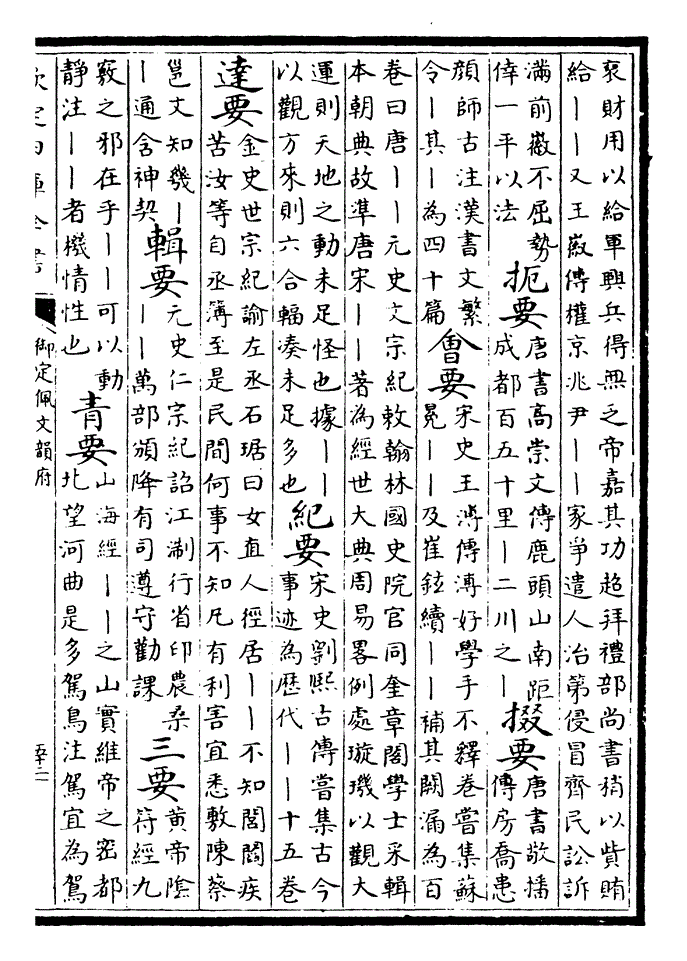 裒財用以給軍興兵得無乏帝嘉其功超拜禮部尚書稍以貲賄
給丨丨又王㣲傳權京兆尹丨丨家爭遣人治第侵冒齊民訟訴
滿前㣲不屈勢
倖一平以法
扼要
唐書高崇文傳鹿頭山南距
成都百五十里丨二川之丨
掇要
唐書敬播
傳房喬患
顔師古注漢書文繁
令丨其丨為四十篇
會要
宋史王溥傳溥好學手不釋卷嘗集蘇
冕丨丨及崔鉉續丨丨補其闕漏為百
卷曰唐丨丨元史文宗紀敕翰林國史院官同奎章閣學士采輯
本朝典故準唐宋丨丨著為經世大典周易畧例處璇璣以觀大
運則天地之動未足怪也據丨丨
以觀方來則六合輻湊未足多也
紀要
宋史劉熙古傳嘗集古今
事迹為歴代丨丨十五卷
達要
金史世宗紀諭左丞石琚曰女直人徑居丨丨不知閭閻疾
苦汝等自丞簿至是民間何事不知凡有利害宜悉敷陳蔡
邕文知㡬丨
丨通含神契
輯要
元史仁宗紀詔江淛行省印農桑
丨丨萬部頒降有司遵守勸課
三要
黄帝隂
符經九
竅之邪在乎丨丨可以動
靜注丨丨者機情性也
青要
山海經丨丨之山實維帝之密都
北望河曲是多駕鳥注駕宜為鴐
欽定四庫全書
御定佩文韻府